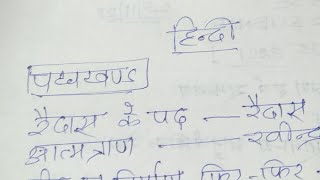 हिन्दी
पद्यखण्ड
रैदास के पद — रैदास
आत्मत्राण ——— रवीन्द्र
निर्माण फिर-फिर